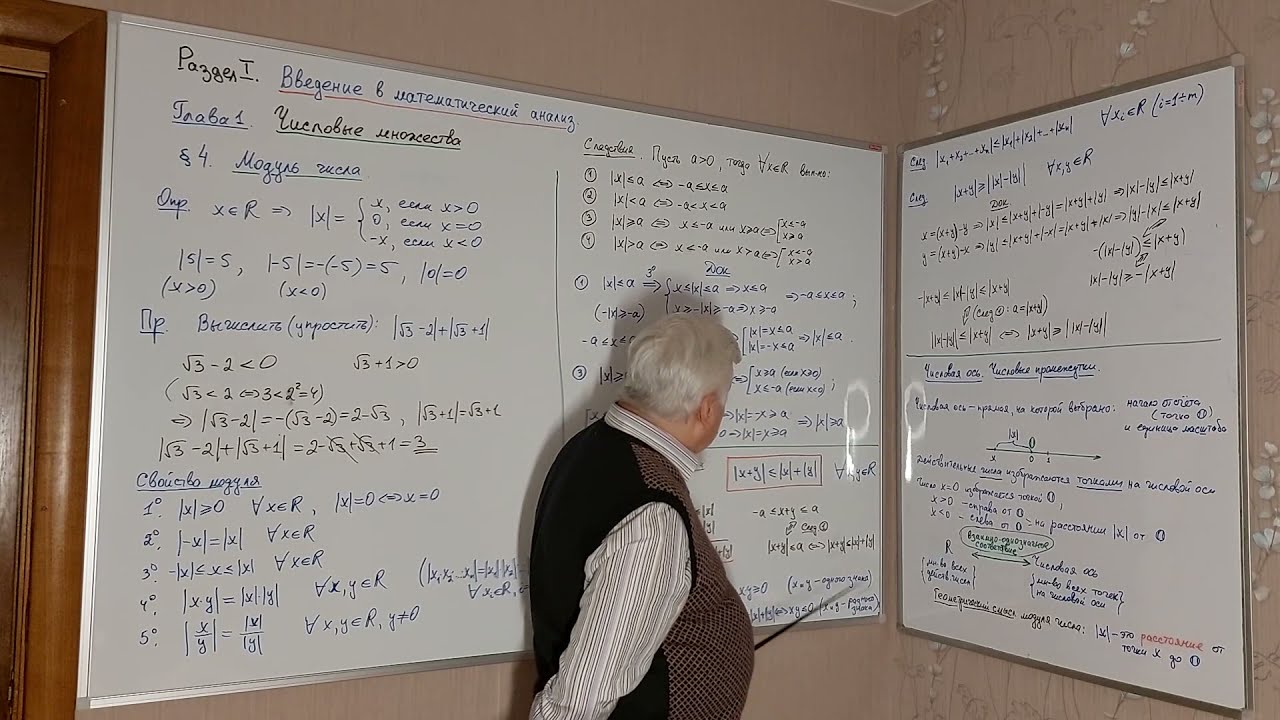 Раздел I. Введение в математический анализ.
Глава 1. Числовые множества
§ 4. Модуль числа.
Опр. x∈R ⇒ |x| = { x, если x>0
0, если x=0
-x, если x<0
|5|=5, |-5|=-(-5)=5, |0|=0
(x>0) (x<0)
Пр. Вычислить (упростить): |√3-2|+|√3+1|
√3-2<0 √3+1>0
(√3<2 ⇔ 3<2²=4)
⇒ |√3-2|=-(√3-2)=2-√3, |√3+1|=√3+1
|√3-2|+|√3+1|=2-√3+√3+1=3
Свойства модуля
1° |x|⩾0 ∀x∈R, |x|=0⇔x=0
2° |-x|=|x| ∀x∈R
3° -|x|⩽x⩽|x| ∀x∈R
4° |x·y|=|x|·|y| ∀x,y∈R
5° |x/y|=|x|/|y| ∀x,y∈R, y≠0
Следствия. Пусть a>0, тогда ∀x∈R вып-но:
① |x|⩽a ⇔ -a⩽x⩽a
② |x|<a ⇔ -a<x<a
③ |x|⩾a ⇔ x⩽-a или x⩾a ⇔ [x⩽-a
x⩾a
④ |x|>a ⇔ x<-a или x>a ⇔ [x<-a
x>a
Док
① |x|⩽a 3°⇒ {x⩽|x|⩽a ⇒ x⩽a ⇒ -a⩽x⩽a ;
(-|x|⩾-a) x⩾-|x|⩾-a ⇒ x⩾-a
-a⩽x⩽ [|x|=x⩽a ⇒ |x|⩽a .
|x|=-x⩽a
③ |x|⩾ [x⩾a (если x⩾0)
x⩽-a (если x<0) ;
|x|=-x⩾a ⇒ |x|⩾a
|x|=x⩾a
|x+y|⩽|x|+|y| ∀x,y∈R
-a⩽x+y⩽a
след ①
|x+y|⩽a ⇔ |x+y|⩽|x|+|y|
xy⩾0 (x и y - одного знака)
|x|+|y| ⇔ xy⩽0 (x и y - разного знака)
След |x₁+x₂+…+xₙ|⩽|x₁|+|x₂|+…+|xₙ| ∀xᵢ∈R (i=1÷n)
След. |x+y|⩾||x|-|y|| ∀x,y∈R
Док
x=(x+y)-y ⇒ |x|⩽|x+y|+|-y|=|x+y|+|y| ⇒ |x|-|y|⩽|x+y|
y=(x+y)-x ⇒ |y|⩽|x+y|+|-x|=|x+y|+|x| ⇒ |y|-|x|⩽|x+y|
-(|x|-|y|)⩽|x+y|
|x|-|y|⩾-|x+y|
-|x+y|⩽|x|-|y|⩽|x+y|
(след ①: a=|x+y|)
||x|-|y||⩽|x+y| ⇔ |x+y|⩾||x|-|y||
Числовая ось. Числовые промежутки.
Числовая ось - прямая, на которой выбрано: начало отсчёта
(точка 0)
и единица масштаба
|x|
x 0 1
Действительные числа изображаются точками на числовой оси
Число x=0 изображается точкой 0 ;
x>0 - справа от 0
x<0 - слева от 0 на расстоянии |x| от 0
взаимно-однозначное
соответствие
R Числовая ось
{мн-во всех
действ. чисел}
{мн-во всех точек
на числовой оси}
Геометрический смысл модуля числа: |x| - это расстояние от
точки x до 0